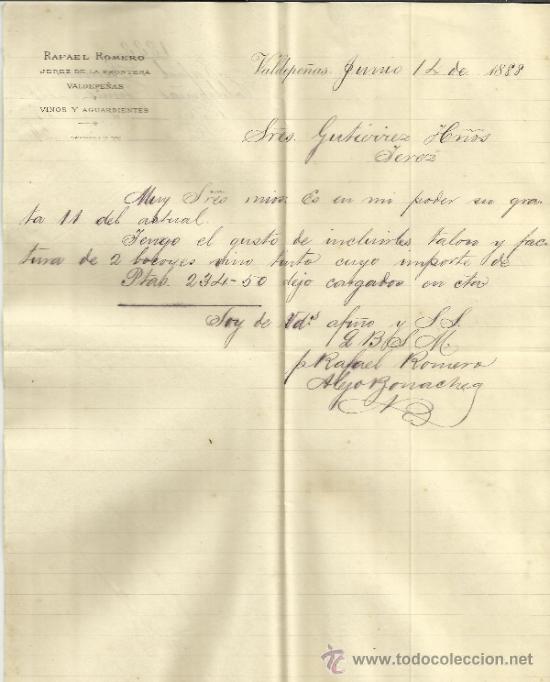 RAFAEL ROMERO
JEREZ DE LA FRONTERA
VALDEPEÑAS
VINOS Y AGUARDIENTES
Valdepeñas Junio 14 de 1888
Sres. Gutiérrez Hños
Jerez
Muy Sres mios: Es en mi poder su gra-
ta 11 del actual.
Tengo el gusto de incluirles talon y fac-
tura de 2 bocoyes vino tinto cuyo importe de
Ptas. 234-50 dejo cargados en cta
Soy de Vds afmo y S.S.
Q B S M
p Rafael Romero
Alejo Bonachea
www.todocoleccion.net